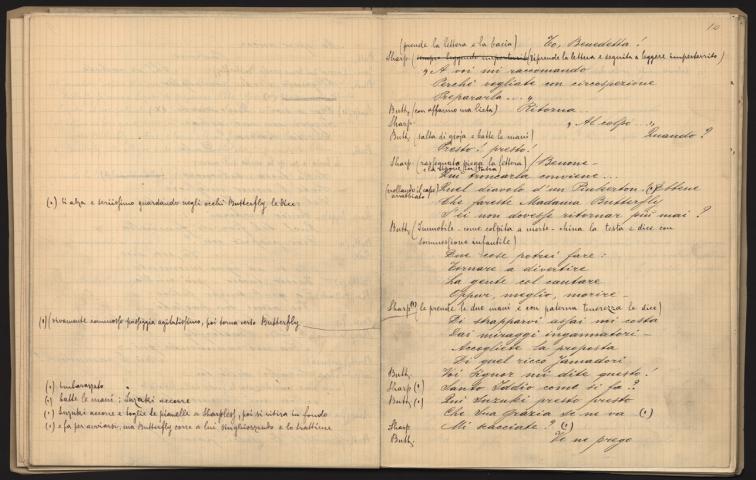 (•) si alza e serissimo guardando negli occhi Butterfly le dice
(•) (vivamente commosso passeggia agitatissimo, poi torna verso Butterfly
(•) imbarazzato
(•) batte le mani: Suzuki accorre
(•) Suzuki accorre e toglie le pianelle a Sharpless, poi si ritira in fondo
(•) e fa per avviarsi, ma Butterfly corre a lui singhiozzando e lo trattiene
10
(prende la lettera e la bacia) To, Benedetta!
Sharp (sempre leggendo imperterrito) (riprende la lettera e seguita a leggere imperterrito)
"A voi mi raccomando
Perchè vogliate con circospezione
Prepararla..."
Butt. (con affanno ma lieta) Ritorna...
Sharp. "Al colpo..."
Butt. (salta di gioja e batte le mani) Quando?
Presto! presto!
Sharp (rassegnato piega la lettera) Benone -
Qui troncarla conviene...
(crollando il capo arrabbiato) Quel diavolo d'un Pinkerton. (•) Ebbene
Che fareste Madama Butterfly
S'ei non dovesse ritornar più mai?
Butt. (Immobile - come colpita a morte - china la testa e dice con
sommessione infantile)
Due cose potrei fare:
Tornare a divertire
La gente col cantare
Oppur, meglio, morire -
Sharp (•) (le prende le due mani e con paterna tenerezza le dice)
Di strapparvi assai mi costa
Dai miraggi ingannatori -
Accogliete la proposta
Di quel ricco Yamadori
Butt. Voi Signor mi dite questo!
Sharp (•) Santo Iddio come si fa?
Butt. (•) Qui Suzuki presto presto
Che Sua Grazia se ne va (•)
Sharp Mi scacciate? (•)
Butt. Ve ne prego